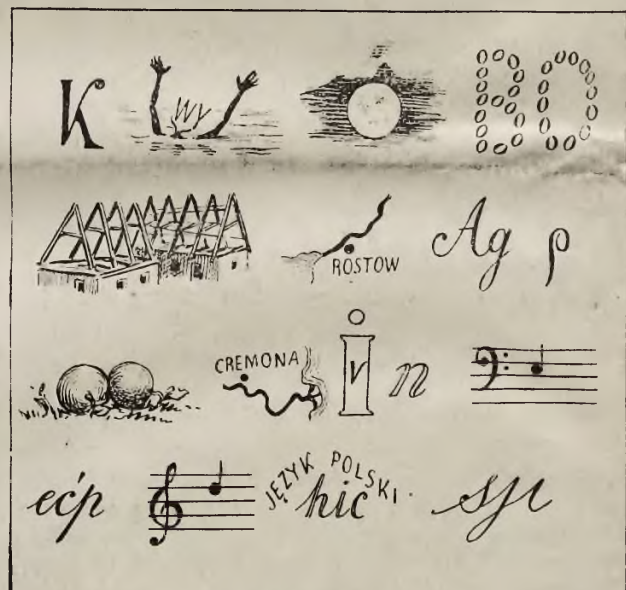 K Wy BO
ROSTOW Ag p
CREMONA i V n
ećp JĘZYK POLSKI hic